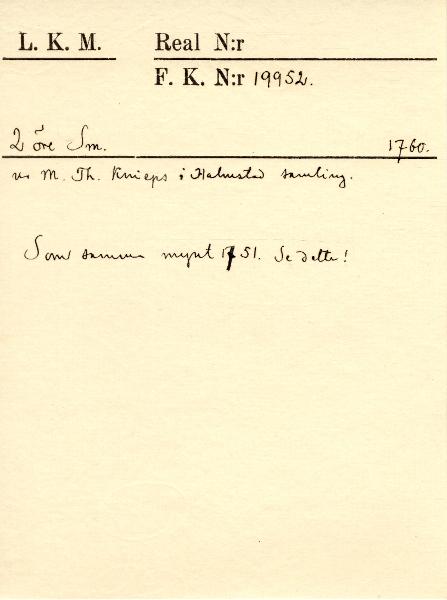 L. K. M. Real N:r
F. K. N:r 19952.
2 öre Sm. 1760.
ur M. Th. Knieps i Halmstad samling.
Som samma mynt 1751. Se detta!